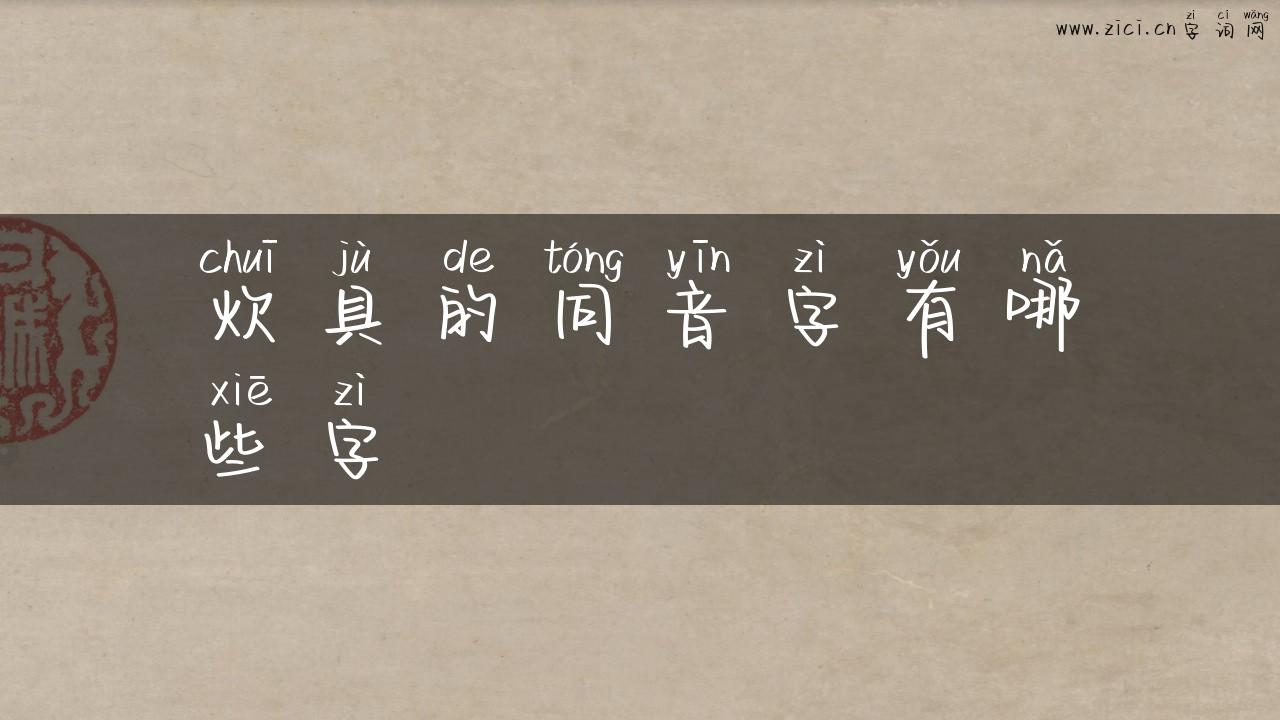 zì cí wǎng
www.zici.cn 字词网
chuī jù de tóng yīn zì yǒu nǎ
炊具的同音字有哪
xiē zì
些字